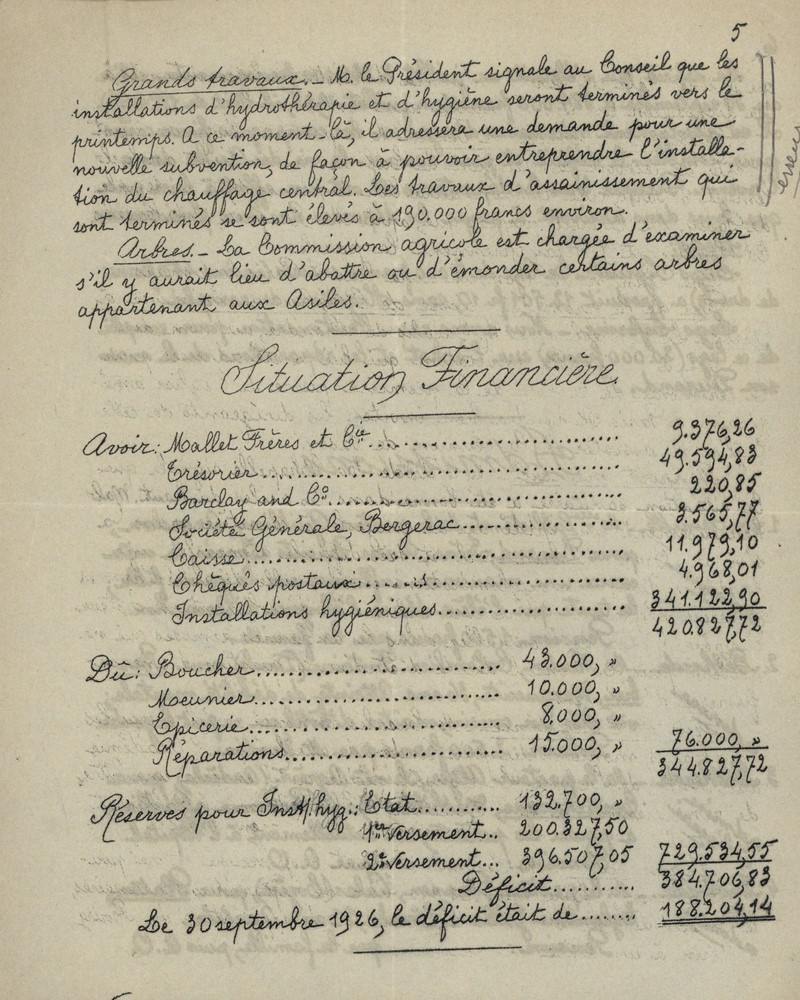 5
Grands travaux. - M. le Président signale au Conseil que les
installations d'hydrothérapie et d'hygiène seront terminés vers le
printemps. A ce moment-là, il adressera une demande pour une
nouvelle subvention, de façon à pouvoir entreprendre l'installa-
tion du chauffage central. Les travaux d'assainissement qui
sont terminés se sont élevés à 190.000 francs environ.
erreur
Arbres. - La Commission agricole est chargée d'examiner
s'il y aurait lieu d'abattre ou d'émonder certains arbres
appartenant aux Asiles.
Situation Financière.
Avoir: Mallet Frères et Cie ........ 9.376,26
Trésorier ........ 49.594,83
Barclay and Co ........ 220,85
Société Générale, Bergerac ........ 3.565,77
Caisse ........ 11.979,10
Chèques postaux ........ 4.968,01
Installations hygiéniques ........ 341.122,90
420.827,72
Dû: Boucher ........ 43.000, "
Meunier ........ 10.000, "
Epicerie ........ 8.000, "
Réparations ........ 15.000, " 76.000, "
344.827,72
Réserves pour Inst. hyg.: Etat ........ 132.700, "
1er Versement .. 200.327,50
2e Versement ... 396.507,05 729.534,55
Déficit .......... 384.706,83
Le 30 septembre 1926, le déficit était de ........ 188.204,14